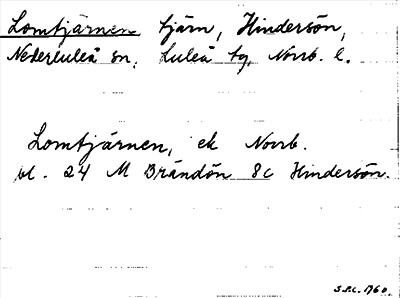 Lomtjärnen tjärn, Hindersön,
Nederluleå sn, Luleå tg, Norrb. l.
Lomtjärnen, ek Norrb.
bl. 24 M Brändön 8c Hindersön.